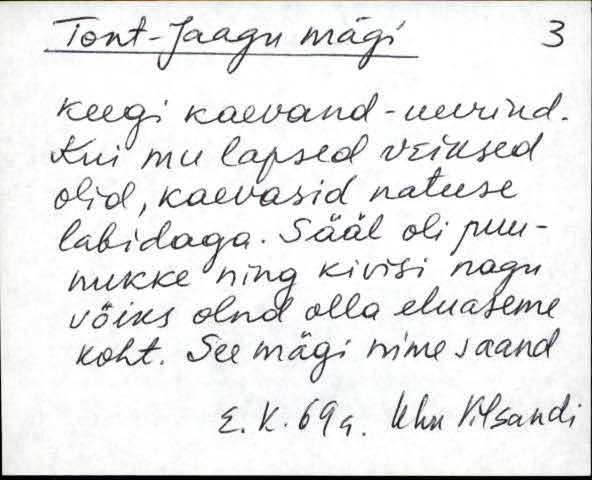 Tont-Jaagu mägi 3
keegi kaevand-uurind.
Kui mu lapsed veiksed
olid, kaevasid natuse
labidaga. Sääl oli puu-
nukke ning kivisi nagu
võiks olnd olla eluaseme
koht. See mägi nime saand
E. K. 69 a. Uhu Vilsandi